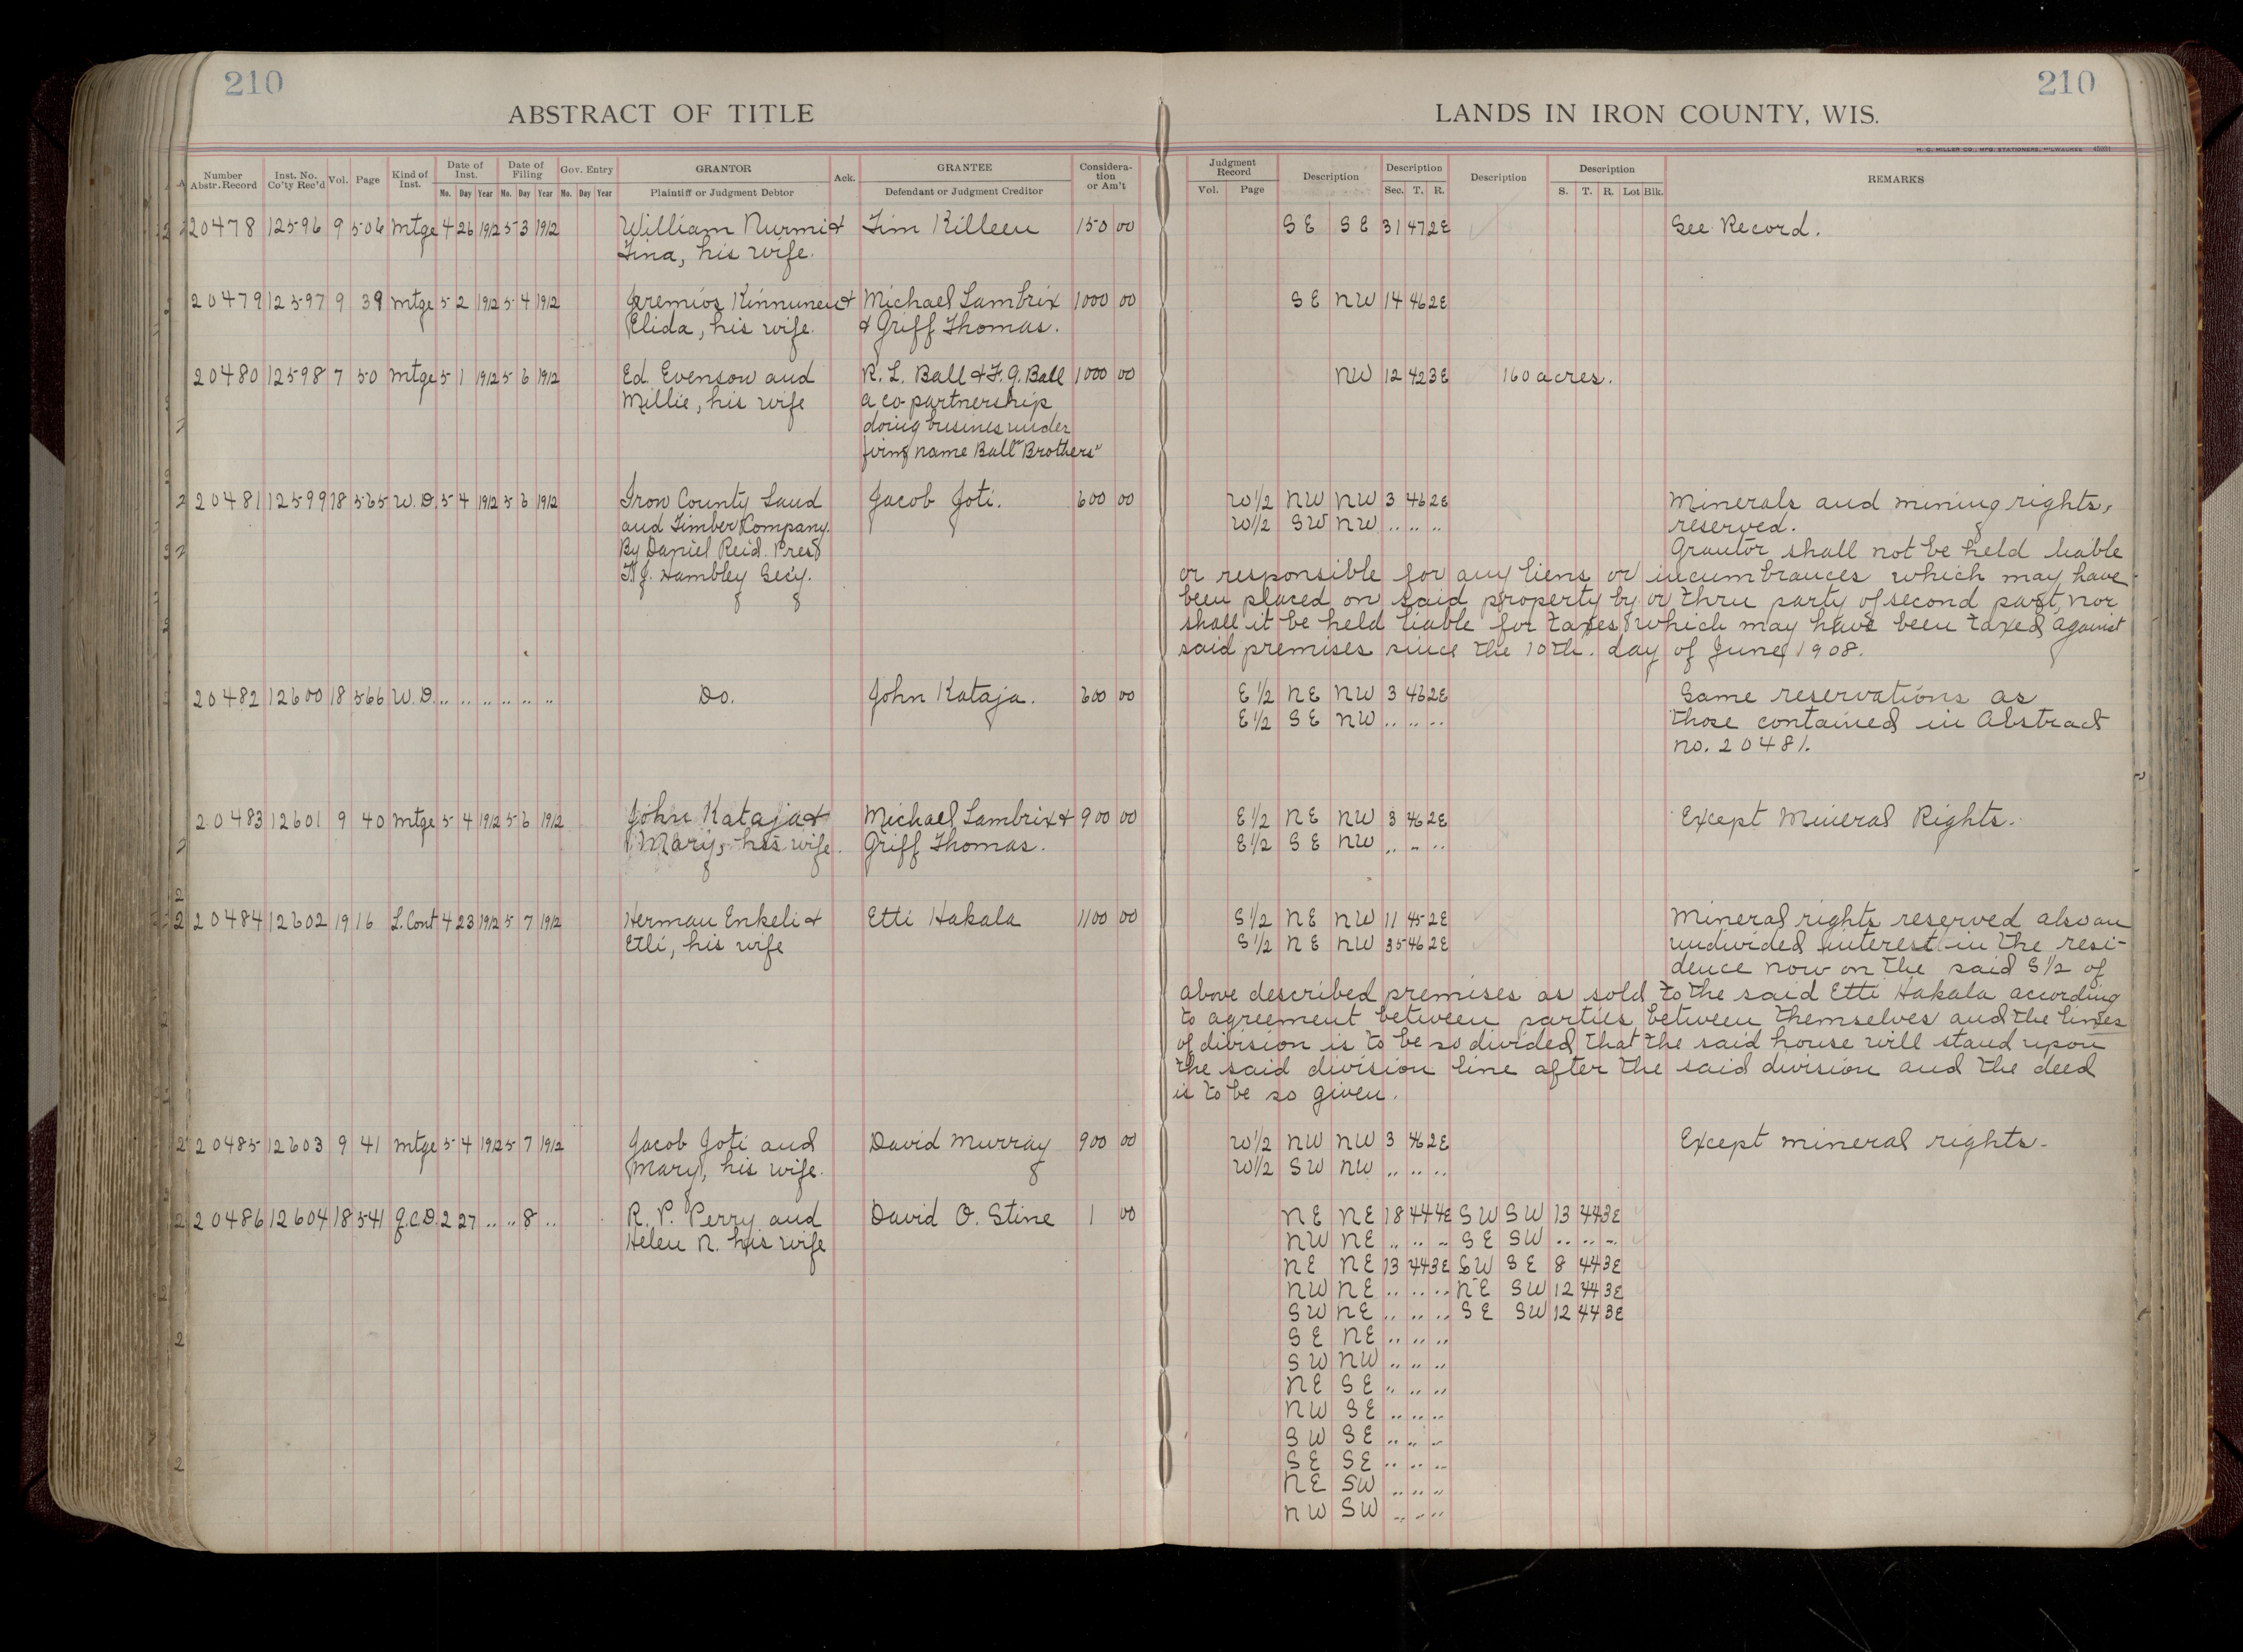 210
210
ABSTRACT OF TITLE
LANDS IN IRON COUNTY, WIS.
H. C. MILLER CO., MFG. STATIONERS, MILWAUKEE
Number Abstr. Record
Inst. No. Co'ty Rec'd
Vol.
Page
Kind of Inst.
Date of Inst.
Date of Filing
Gov. Entry
GRANTOR
Ack.
GRANTEE
Considera-tion or Am't
Judgment Record
Description
Description
Description
Description
REMARKS
No. Day Year No. Day Year No. Day Year
Plaintiff or Judgment Debtor
Defendant or Judgment Creditor
Vol. Page
Sec. T. R.
S. T. R. Lot Blk.
20478 12596 9 506 Mtge 4 26 1912 5 3 1912 William Nurmi & Tim Killeen 150 00 SE SE 31 47 2E See Record.
Tina, his wife.
20479 12597 9 39 Mtge 5 2 1912 5 4 1912 Jeremios Kinnunen & Michael Lambrix 1000 00 SE NW 14 46 2E
Elida, his wife. & Griff Thomas.
20480 12598 7 50 Mtge 5 1 1912 5 6 1912 Ed. Evenson and R. L. Ball & F. G. Ball 1000 00 NW 12 42 3E 160 acres.
Millie, his wife a co-partnership
doing busines under
firm name Ball "Brothers"
20481 12599 18 565 W. D. 5 4 1912 5 6 1912 Iron County Land Jacob Joti. 600 00 W 1/2 NW NW 3 46 2E Minerals and mining rights,
and Timber Company. W 1/2 SW NW .. .. .. reserved.
By Daniel Reid. Pres Grantor shall not be held liable
Hambley Secy. or responsible for any liens or incumbrances which may have
been placed on said property by or thru party of second part, nor
shall it be held liable for taxes which may have been taxed against
said premises since the 10th. day of June 1908.
20482 12600 18 566 W. D. .. .. .. .. .. .. Do. John Kataja. 600 00 E 1/2 NE NW 3 46 2E Same reservations as
E 1/2 SE NW .. .. .. those contained in Abstract
no. 20481.
20483 12601 9 40 Mtge 5 4 1912 5 6 1912 John Kataja & Michael Lambrix & 900 00 E 1/2 NE NW 3 46 2E Except Mineral Rights.
Mary, his wife. Griff Thomas. E 1/2 SE NW .. .. ..
20484 12602 19 16 L. Cont 4 23 1912 5 7 1912 Herman Enkeli & Etti Hakala 1100 00 S 1/2 NE NW 11 45 2E Mineral rights reserved also an
Etli, his wife S 1/2 NE NW 35 46 2E undivided interest in the resi-
dence now on the said S 1/2 of
above described premises as sold to the said Etti Hakala acording
to agreement between parties between themselves and the lines
of division is to be so divided that the said house will stand upon
the said division line after the said division and the deed
is to be so given.
20485 12603 9 41 Mtge 5 4 1912 5 7 1912 Jacob Joti and David Murray 900 00 W 1/2 NW NW 3 46 2E Except mineral rights.
Mary, his wife. W 1/2 SW NW .. .. ..
20486 12604 18 541 Q.C.D. 2 27 .. .. 8 .. R. P. Perry and David O. Stine 1 00 NE NE 18 44 4E SW SW 13 44 3E
Helen N. his wife NW NE .. .. .. SE SW .. .. ..
NE NE 13 44 3E SW SE 8 44 3E
NW NE .. .. .. NE SW 12 44 3E
SW NE .. .. .. SE SW 12 44 3E
SE NE .. .. ..
SW NW .. .. ..
NE SE .. .. ..
NW SE .. .. ..
SW SE .. .. ..
SE SE .. .. ..
NE SW .. .. ..
NW SW .. .. ..